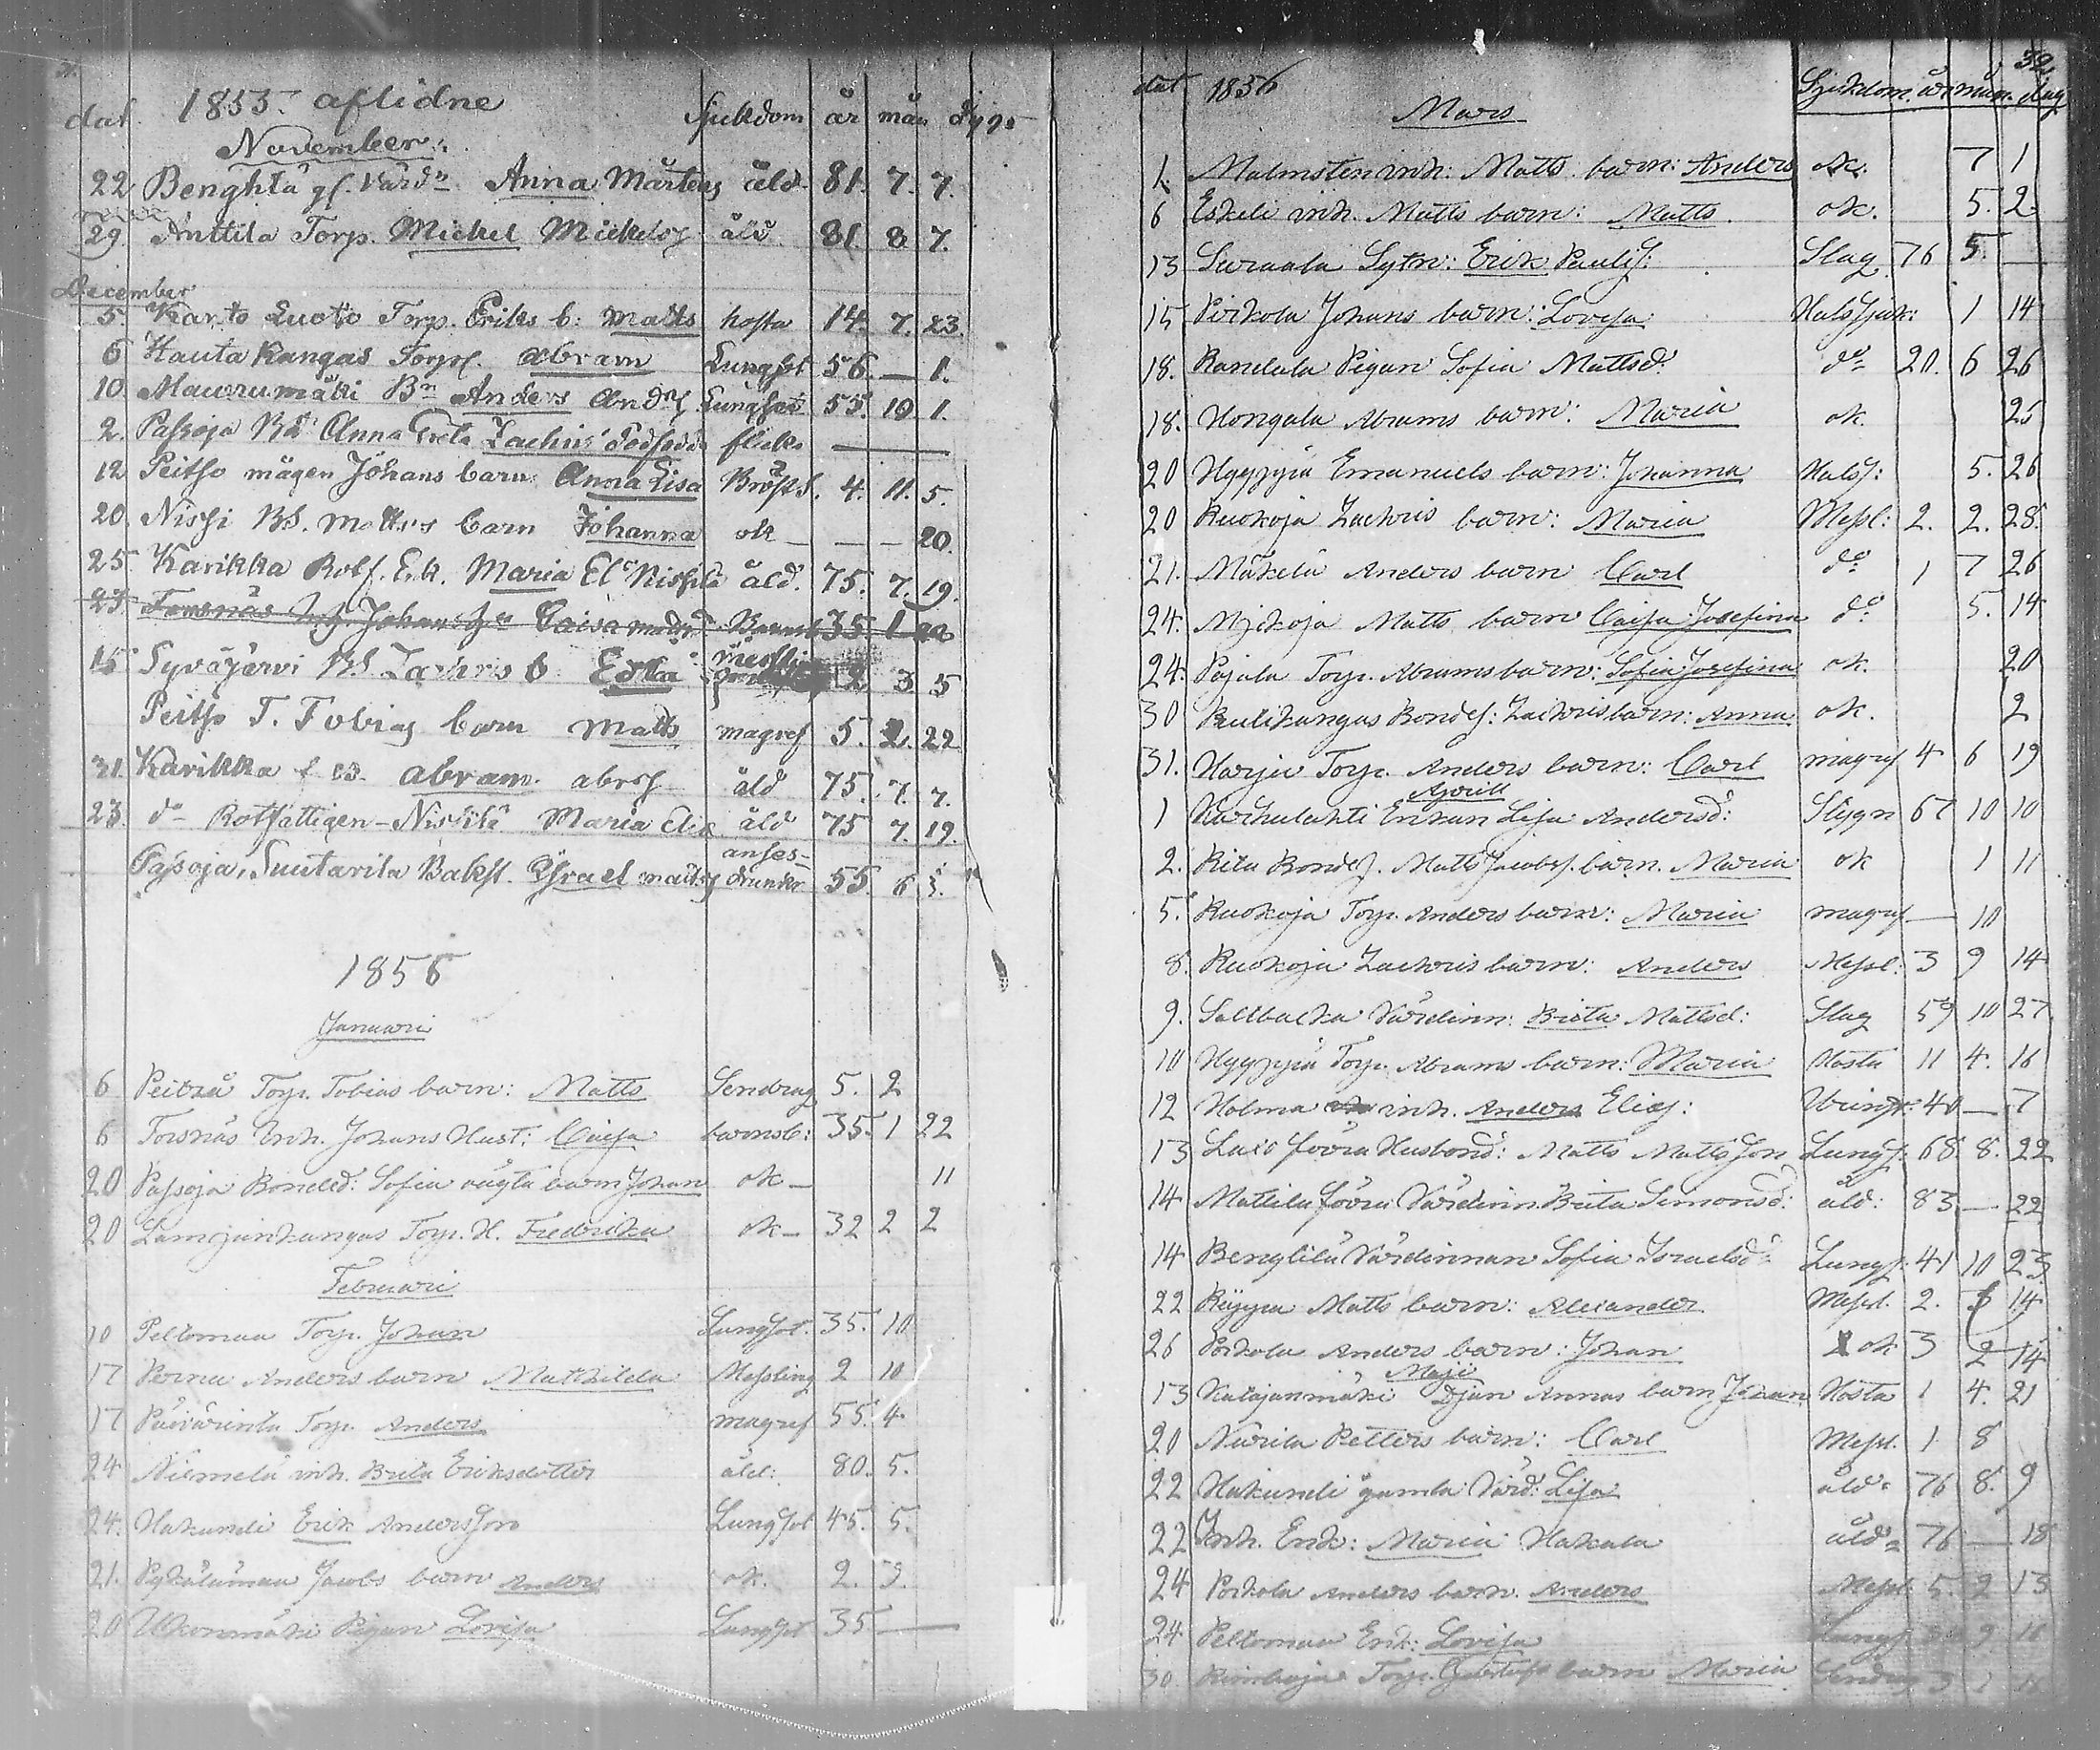 dat. 1855. aflidne Sjukdom år mån dygn
November.
22 Benghtä gl. Värdn Anna Mårtens åld. 81. 7. 7.
29. Anttila Torp. Michel Mickels åld 81. 8 7.
December
5. Karto Luoto Torp. Eriks b: Matts hosta 14. 7. 23.
6 Hauta Kangas Torp. Abram Lungsot 56 — 1.
10. Maurumäki Bn Anders Anders Lungsot 55. 10 1.
2. Passoja Anna Greta Zachris dödfödd flicka —
12 Peitso mågen Johans barn Anna Lisa Bröst. 4. 11. 5.
20. Nissi Bd. Matts's barn Johanna ok — — — 20.
25 Karikka Rotf. Enk. Maria El. Nissilä åld. 75. 7. 19.
23. Forsnäs Inh. Johans Caisa 35 1 22
15 Syväjärvi Bd. Zachris b Edla messling 2 3 5
Peitso T. Tobias barn Matts magref 5. 2. 22
31. Karikka Abram. Abr åld 75. 7. 7.
23. do Rotfattigen Nissilä Maria Elis åld 75 7. 19.
Passoja, Suutarila Bakst. Israel Matts anses drunkn 55. 6 3.
1856
Januari
6 Peitzå Torp. Tobias barn: Matts Sendrag 5. 2
6 Forsnäs Inh. Johans Hust: Caisa barnsb: 35. 1 22
20 Passoja Bonded: Sofia oägta barn Johan ok — 11
20 Lampinkangas Torp. H. Fredrika ok — 32 2 2
Februari
10 Peltomaa Torp. Johan Lungsot. 35. 10
17 Pernu Anders barn Mathilda Messling 2 10
17 Päivärinta Torp. Anders magref 55. 4
24 Niemelä inh. Brita Eriksdotter åld: 80. 5.
24. Hakundi Erik Andersson Lungsot 45. 5.
21. Pykälämaa Jacobs barn Anders ok. 2. 3.
20 Ukonmäki Pigan Lovisa Lungsot 35 —
32
dat 1856 Sjukdom. år mån. dag
Mars
1. Malmsten inh: Matts barn: Anders ok. 7 1
6 Eskeli inh. Matts barn: Matts. ok. 5. 2
13 Suraala Sytn: Erik Paulis: Slag 76 5. —
15 Pirkola Johans barn: Lovisa Halssjuk: 1 14
18. Randula Pigan Sofia Mattsd: do 20. 6 26
18. Hongala Abrams barn: Maria ok. 25
20 Hyyppä Emanuels barn: Johanna Halss: 5. 26
20 Ruokoja Zachris barn: Maria Messl: 2. 2. 28.
21. Mäkelä Anders barn Carl do 1 7 26
24. Myckoja Matts barn Caisa Josefina do 5. 14
24. Pajala Torp. Abrams barn: Sofia Josefina ok. 20
30 Rutikangas Bondes: Zachris barn: Anna ok. 2
31. Harju Torp. Anders barn: Carl magref 4 6 19
April
1 Karhulahti Enkan Lisa Andersd: Stygn 67 10 10
2. Rita Bondes. Matts Jacobs. barn. Maria ok 1 11
5. Ruokoja Torp. Anders barn: Maria magref — 10
8. Ruokoja Zachris barn: Anders Messl: 3 9 14
9. Saltbacka Värdinn: Brita Mattsd: Slag 59 10 27
10 Hyyppä Torp. Abrams barn: Maria Hosta 11 4. 16
12 Holma inh. Anders Elias: 40 — 7
13 Laxo förra Husbond: Matts Mattsson Lungs: 68. 8. 22
14 Mattila förra Värdinn Brita Simonsd: åld: 83 — 22
14 Benglilä Värdinnan Sofia Israelsd: Lungs. 41 10 23
22 Ryypa Matts barn: Alexander Messl. 2. 5 14
26 Porkola Anders barn: Johan ok 3 2 14
Maji
13 Katajanmäki Annas barn Johan Hosta 1 4. 21
20 Nurila Petters barn: Carl Messl. 1 8
22 Hakundi gamla Värd: Lisa åld: 76 8. 9
22 Inh. Enk: Maria Hakala åld: 76 — 18
24 Porkola Anders barn. Anders Messl. 5. 2 13
24 Peltomaa Enk: Lovisa Lungs 9 11
30. Torp. Gustafs barn Maria Sendrag 3 1